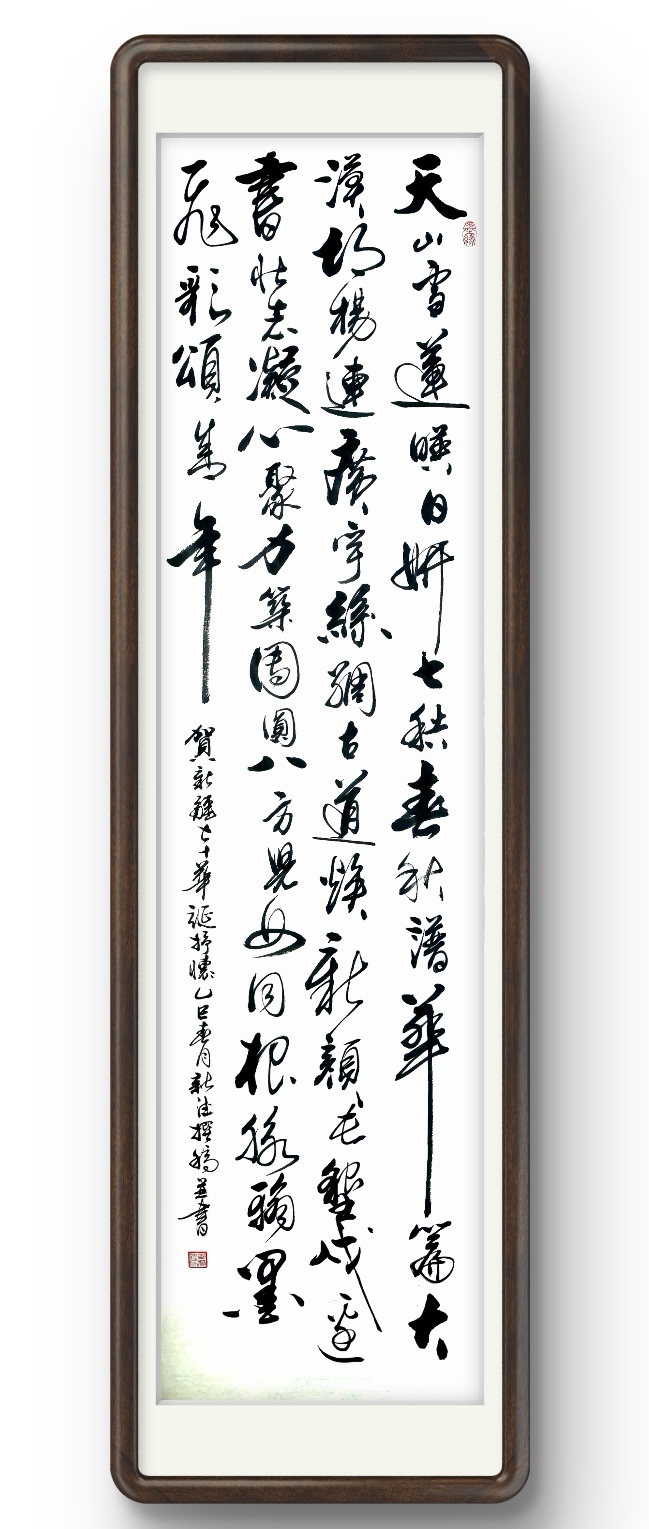 天山雪蓮暎日妍七秩春秋譜華篇大
漠胡楊連廣宇絲綢古道煥新顏屯墾戍邊
書壯志凝心聚力築團圓八方兒女同根脉翰墨
飛彩頌萬年
賀新疆七十華誕抒懷乙巳春月新撰稿並書